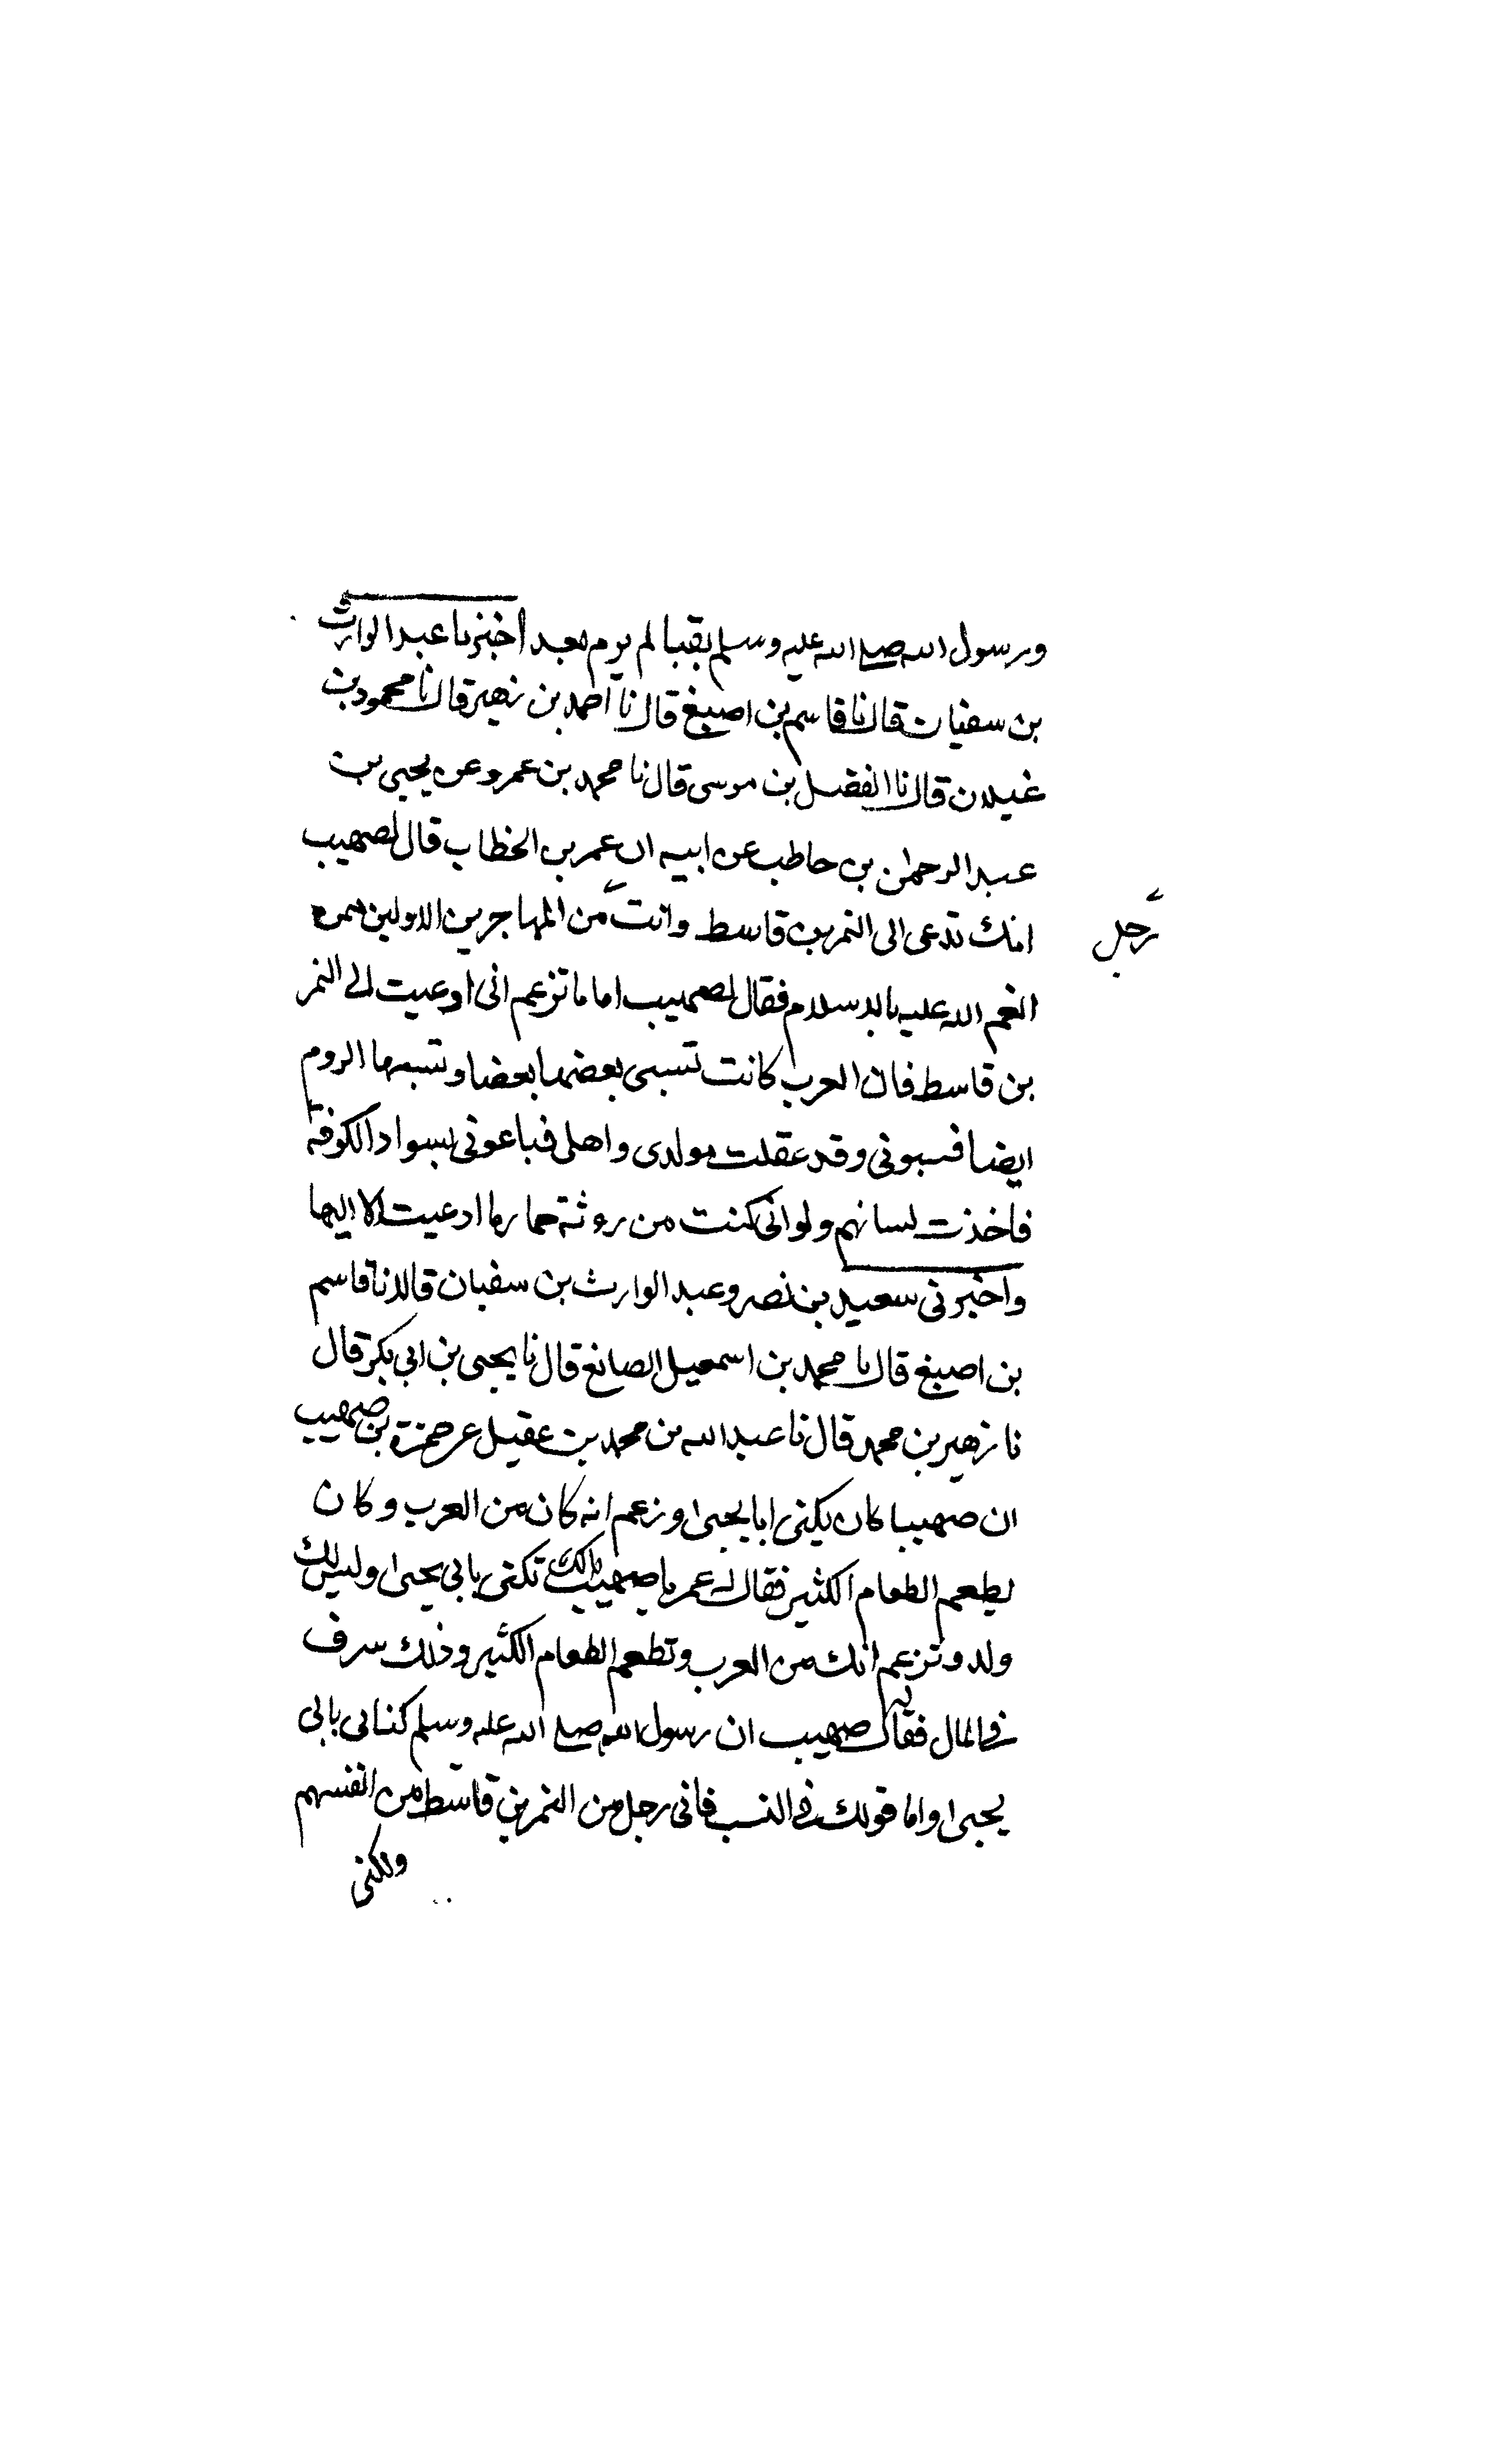 ورسول الله صلى الله عليه وسلم بقبا لم يرم بعد أخبرنا عبد الوارث
بن سفيان قال نا قاسم بن اصبغ قال نا احمد بن زهير قال نا محمود بن
غيلان قال نا الفضل بن موسى قال نا محمد بن عمرو عن يحيى بن
عبد الرحمن بن حاطب عن ابيه ان عمر بن الخطاب قال لصهيب
انك تدعى الى النمر بن قاسط وانت من المهاجرين الاولين ممن
رجل
انعم الله عليه بالاسلام فقال صهيب اما ما تزعم انى ادعيت الى النمر
بن قاسط فان العرب كانت تسبى بعضها بعضا وتسبيها الروم
ايضا فسبونى وقد عقلت مولدى واهلى فباعونى بسواد الكوفة
فاخذت لسانهم ولو انى كنت من روثة حمار ما ادعيت الا اليها
واخبرنى سعيد بن نصر وعبد الوارث بن سفيان قالا نا قاسم
بن اصبغ قال نا محمد بن اسمعيل الصائغ قال نا يحيى بن ابى بكر قال
نا زهير بن محمد قال نا عبد الله بن محمد بن عقيل عن حمزة بن صهيب
ان صهيبا كان يكنى ابا يحيى وزعم انه كان من العرب وكان
يطعم الطعام الكثير فقال له عمر يا صهيب مالك تكنى بابى يحيى وليس لك
ولد وتزعم انك من العرب وتطعم الطعام الكثير وذلك سرف
فى المال فقال له صهيب ان رسول الله صلى الله عليه وسلم كنانى بابى
يحيى واما قولك فى النسب فانى رجل من النمر بن قاسط من انفسهم
ولكنى